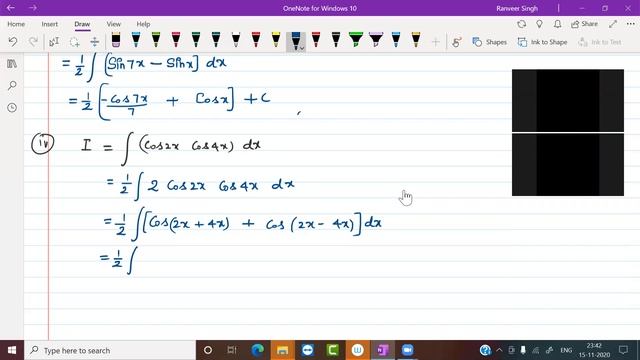 OneNote for Windows 10
Ranveer Singh
Home Insert Draw View Help
Shapes Ink to Shape
= 1/2 ∫ [Sin7x − Sinx] dx
= 1/2 [−Cos7x/7 + Cosx] + C
(iv) I = ∫ (Cos2x Cos4x) dx
= 1/2 ∫ 2 Cos2x Cos4x dx
= 1/2 ∫ [Cos(2x + 4x) + Cos(2x − 4x)] dx
= 1/2 ∫
Type here to search
ENG
23:42
15-11-2020